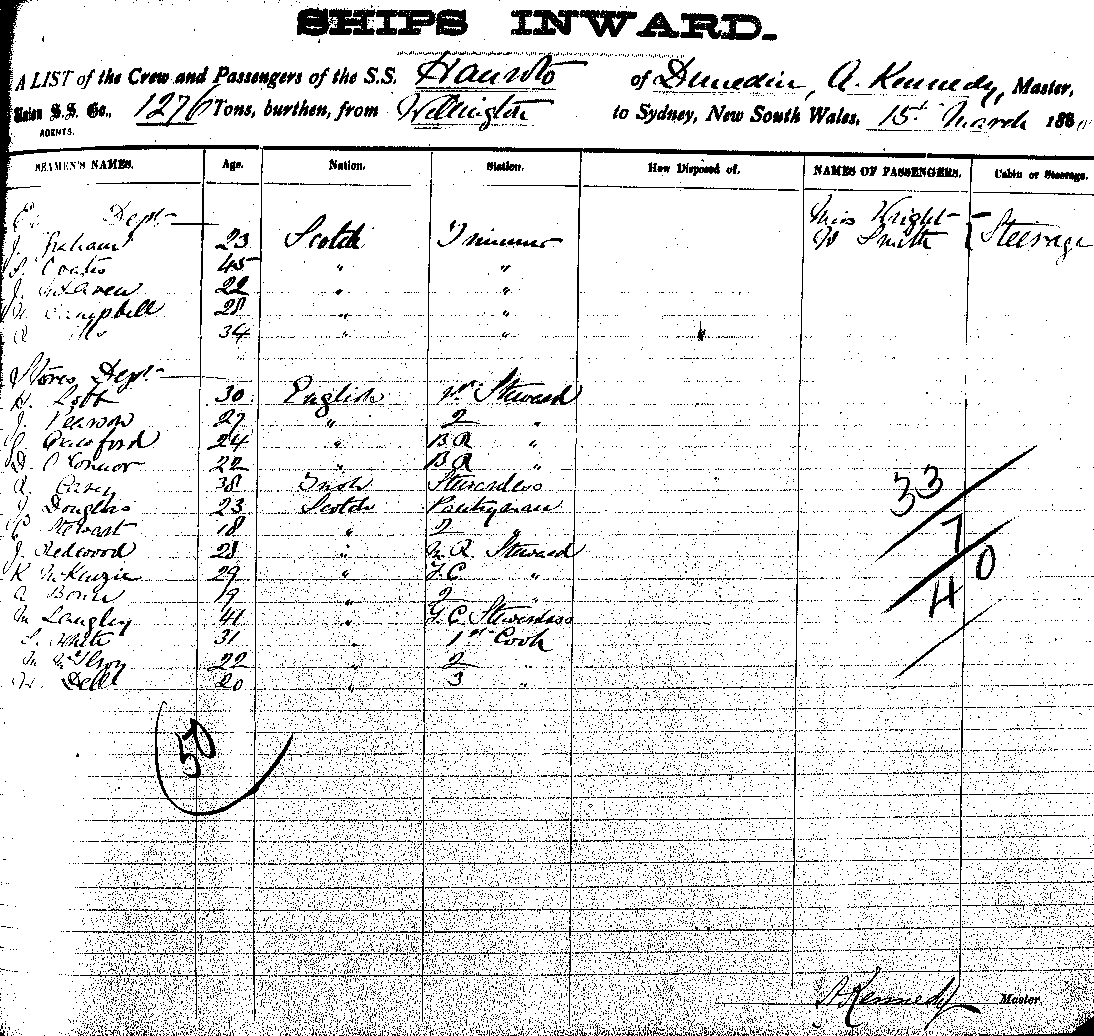 SHIPS INWARD.
A LIST of the Crew and Passengers of the S.S. Hauroto of Dunedin, A. Kennedy, Master,
Union S.S. Co., 1276 Tons, burthen, from Wellington to Sydney, New South Wales, 15th March 188
AGENTS.
SEAMEN'S NAMES. Age. Nation. Station. How Disposed of. NAMES OF PASSENGERS. Cabin or Steerage.
Dept Miss Wright
J. Graham 23 Scotch Trimmer W Smith Steerage
S. Coates 45 " "
J. McLaren 22 " "
Campbell 28 " "
34 " "
Stores Dept
H. Robb 30 English 1st Steward
J. Pearson 27 " 2 "
Gainsford 24 " B.R "
D. O'Connor 22 " B.R "
Casey 38 Irish Stewardess
J. Douglas 23 Scotch Pantryman
Stewart 18 " 2 "
J. Redwood 28 " M.R. Steward
K McKenzie 29 " F.C "
19 " 2 "
M Langley 41 " F.C. Stewardess
S. White 31 " 1st Cook
M McIlroy 22 " 2 "
W. Dell 20 " 3 "
33
7
40
50
A Kennedy Master.